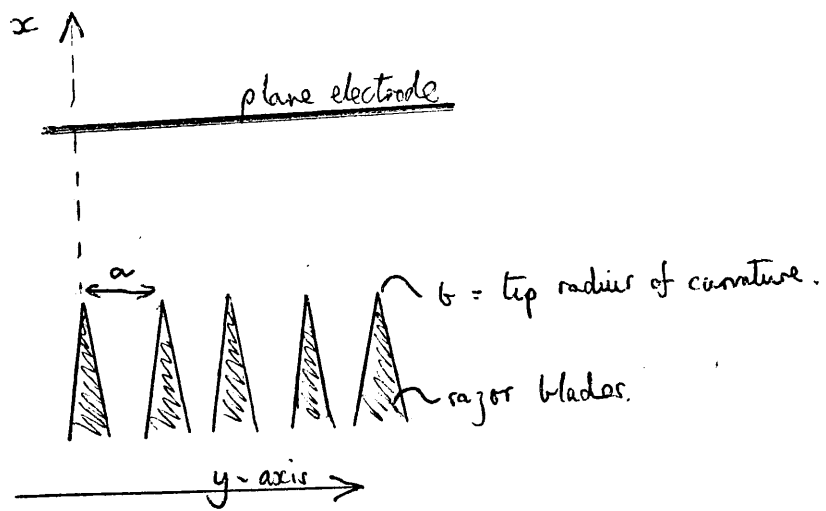 x
plane electrode
a
b = tip radius of curvature.
razor blades.
y-axis